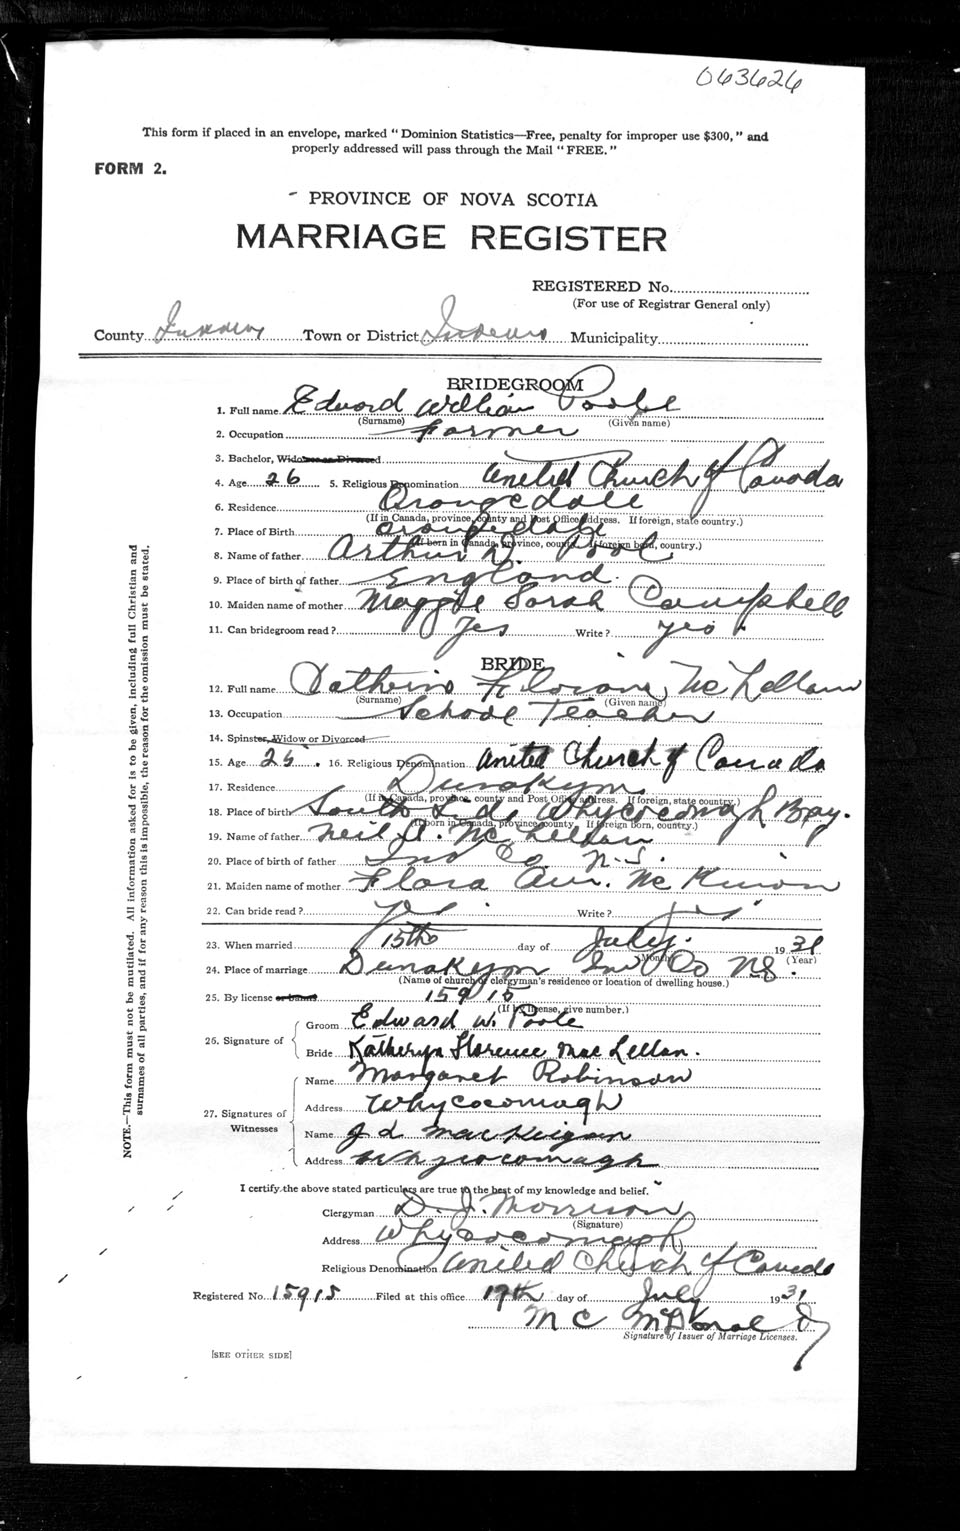 063626
This form if placed in an envelope, marked "Dominion Statistics—Free, penalty for improper use $300," and
properly addressed will pass through the Mail "FREE."
FORM 2.
PROVINCE OF NOVA SCOTIA
MARRIAGE REGISTER
REGISTERED No.
(For use of Registrar General only)
County Town or District Municipality
BRIDEGROOM
1. Full name Edward William Poole
(Surname) (Given name)
2. Occupation Farmer
3. Bachelor, Widower or Divorced
4. Age 26 5. Religious Denomination United Church of Canada
6. Residence Orangedale
(If in Canada, province, county and Post Office address. If foreign, state country.)
7. Place of Birth Orangedale
(If born in Canada, province, county. If foreign born, country.)
8. Name of father Arthur Pool
9. Place of birth of father England.
10. Maiden name of mother Maggie Sarah Campbell
11. Can bridegroom read? Yes Write? yes
BRIDE
12. Full name McLellan
(Surname) (Given name)
13. Occupation School Teacher
14. Spinster, Widow or Divorced
15. Age 25 16. Religious Denomination United Church of Canada
17. Residence Dunakyn
(If in Canada, province, county and Post Office address. If foreign, state country.)
18. Place of birth South Whycocomagh Bay.
(If born in Canada, province county. If foreign born, country.)
19. Name of father Neil McLellan
20. Place of birth of father Inv Co. N.S.
21. Maiden name of mother Flora Ann McKinnon
22. Can bride read? yes Write? yes
23. When married 15th day of July. 1931
(Month) (Year)
24. Place of marriage Dunakyn Inv Co NS.
(Name of church or clergyman's residence or location of dwelling house.)
25. By license or banns 15915
(If by license, give number.)
26. Signature of
Groom Edward W. Poole
Bride Katheryn Florence MacLellan.
27. Signatures of Witnesses
Name Margaret Robinson
Address Whycocomagh
Name J D MacKeigan
Address Whycocomagh
I certify the above stated particulars are true to the best of my knowledge and belief.
Clergyman D. J. Morrison
(Signature)
Address Whycocomagh
Religious Denomination United Church of Canada
Registered No. 15915 Filed at this office 17th day of July 1931
M C McDonald
Signature of Issuer of Marriage Licenses.
[SEE OTHER SIDE]
NOTE.—This form must not be mutilated. All information asked for is to be given, including full Christian and
surnames of all parties, and if for any reason this is impossible, the reason for the omission must be stated.